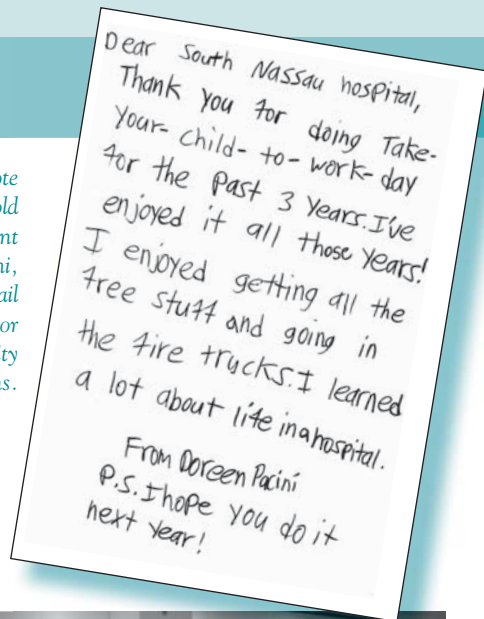 ote
old
nt
ni,
ail
or
ity
ns.
Dear South Nassau hospital,
Thank you for doing Take-
Your-child-to-work-day
for the past 3 Years. I've
enjoyed it all those years!
I enjoyed getting all the
free stuff and going in
the fire trucks. I learned
a lot about life in a hospital.
From Doreen Pacini
P.S. I hope you do it
next year!